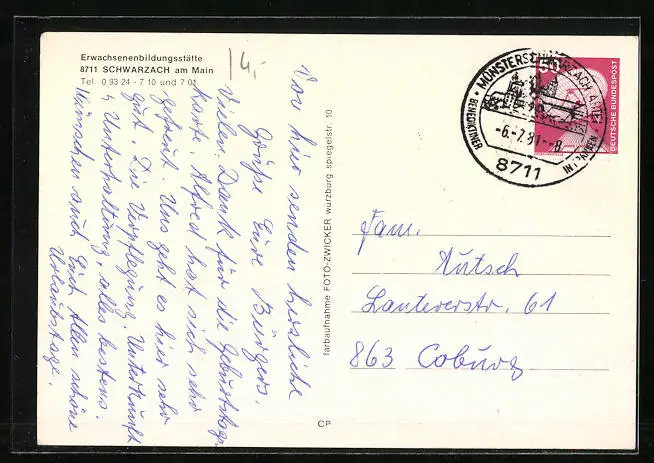 Erwachsenenbildungsstätte
8711 SCHWARZACH am Main
Tel. 0 93 24 - 7 10 und 7 01
14,-
Von hier senden herzliche
Grüße Eure Bürgers.
Vielen Dank für die Geburtstags-
karte. Alfred hat sich sehr
gefreut. Uns geht es hier sehr
gut. Die Verpflegung, Unterkunft
u. Unterhaltung, alles bestens.
Wünschen auch Euch Allen schöne
Urlaubstage.
farbaufnahme FOTO-ZWICKER würzburg spiegelstr. 10
CP
MÜNSTERSCHWARZACH ABTEI
BENEDIKTINER
IN FRANKEN
-6.-7.81--8
8711
50
DEUTSCHE BUNDESPOST
Fam.
Autsch
Lauterer str. 61
863 Coburg